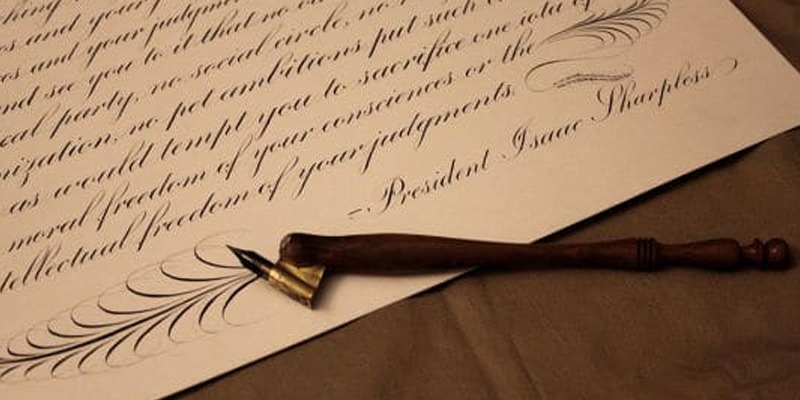 and your judgm
s and your judgments
and see you to it that no
cal party, no social circle, no
nization, no pet ambitions put such
as would tempt you to sacrifice one iota of
moral freedom of your consciences or the
tellectual freedom of your judgments.
–President Isaac Sharpless